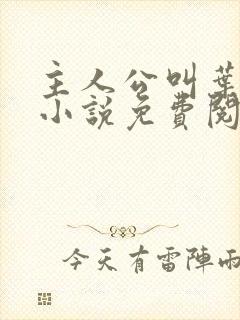 主人公叫葉
小說免費閱
今天有雷陣雨